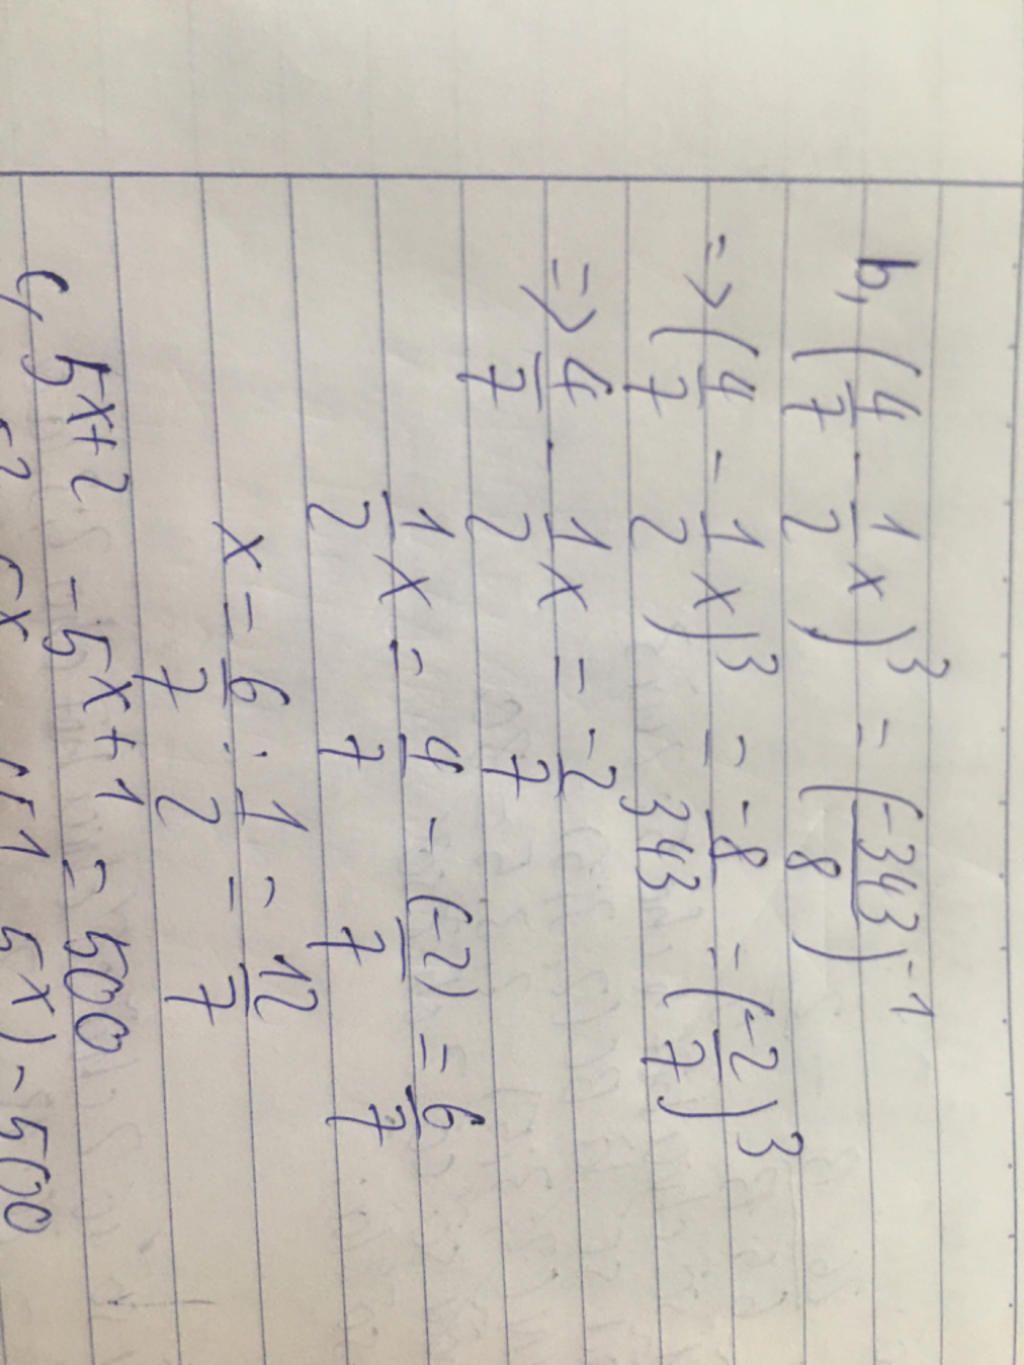 b, (4/7 - 1/2 x)³ = (-343/8)⁻¹
=> (4/7 - 1/2 x)³ = -8/343 = (-2/7)³
=> 4/7 - 1/2 x = -2/7
1/2 x = 4/7 - (-2)/7 = 6/7
x = 6/7 : 1/2 = 12/7
c, 5x+2 - 5x+1 = 500
5x) - 500